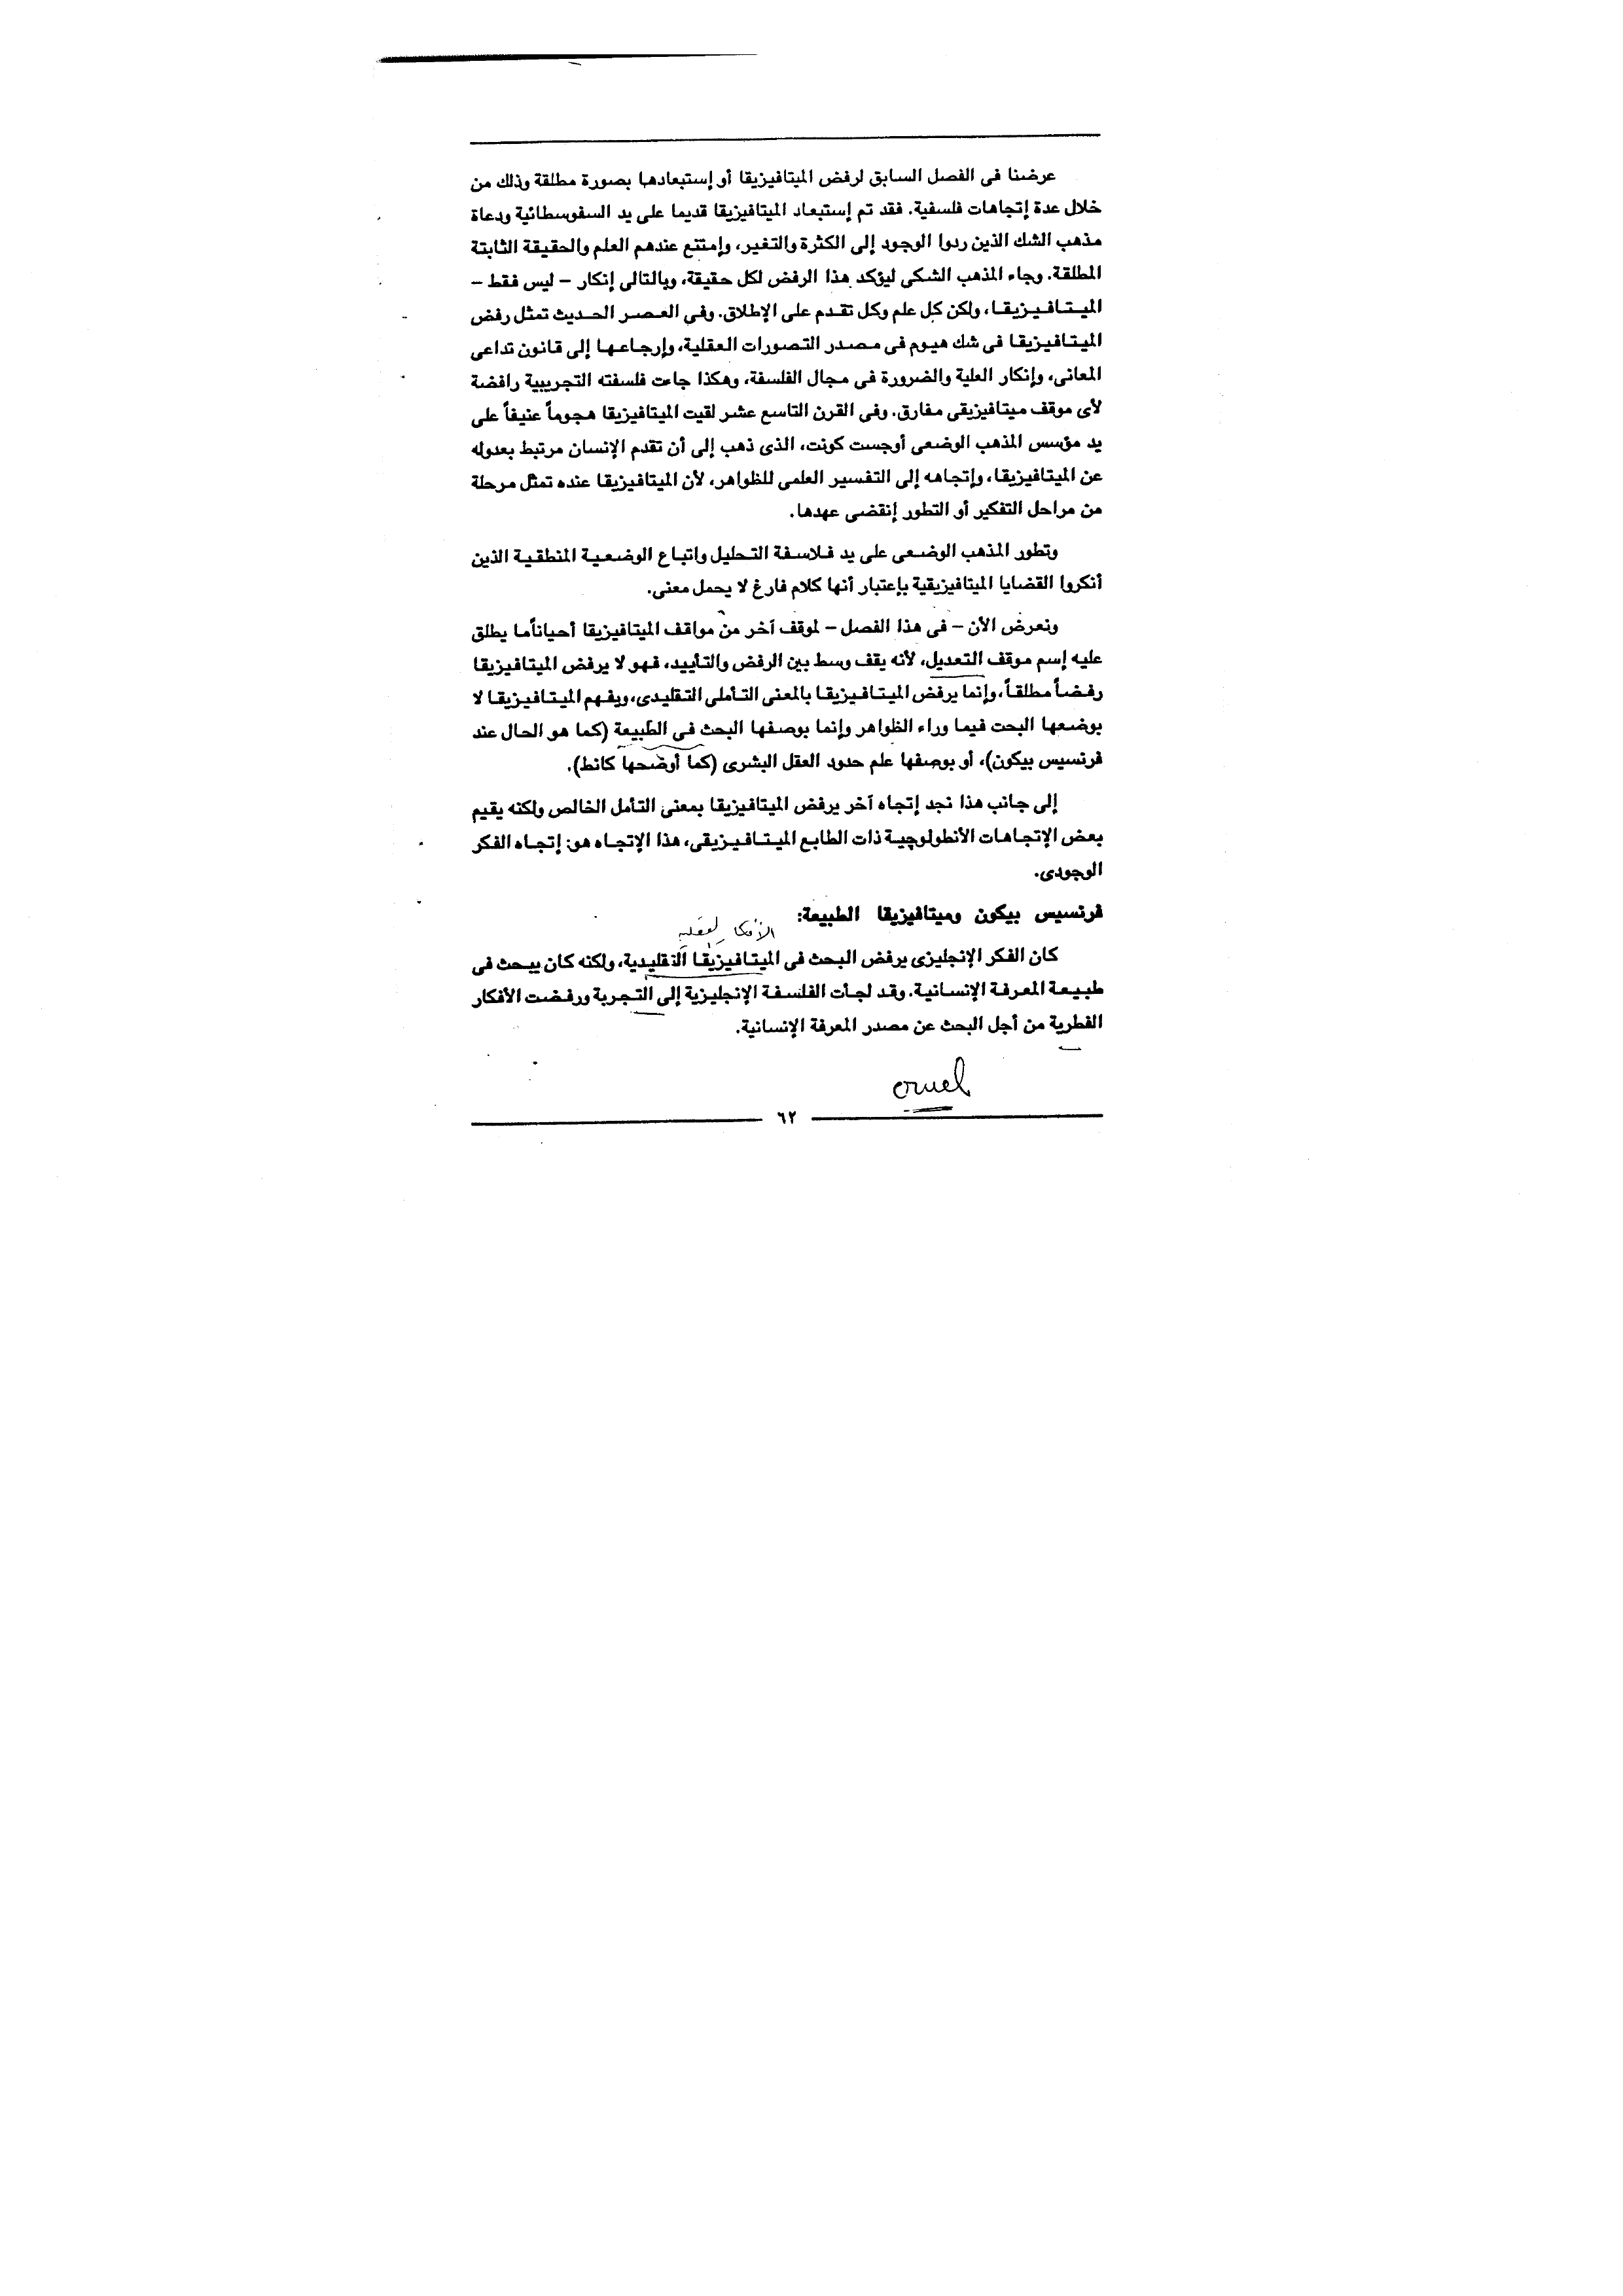 عرضنا فى الفصل السابق لرفض الميتافيزيقا أو إستبعادها بصورة مطلقة وذلك من
خلال عدة إتجاهات فلسفية. فقد تم إستبعاد الميتافيزيقا قديما على يد السفوسطائية ودعاة
مذهب الشك الذين ردوا الوجود إلى الكثرة والتغير، وإمتنع عندهم العلم والحقيقة الثابتة
المطلقة. وجاء المذهب الشكى ليؤكد هذا الرفض لكل حقيقة، وبالتالى إنكار – ليس فقط –
الميتافيزيقا، ولكن كل علم وكل تقدم على الإطلاق. وفى العصر الحديث تمثل رفض
الميتافيزيقا فى شك هيوم فى مصدر التصورات العقلية، وإرجاعها إلى قانون تداعى
المعانى، وإنكار العلية والضرورة فى مجال الفلسفة، وهكذا جاءت فلسفته التجريبية رافضة
لأى موقف ميتافيزيقى مفارق. وفى القرن التاسع عشر لقيت الميتافيزيقا هجوماً عنيفاً على
يد مؤسس المذهب الوضعى أوجست كونت، الذى ذهب إلى أن تقدم الإنسان مرتبط بعدوله
عن الميتافيزيقا، وإتجاهه إلى التفسير العلمى للظواهر، لأن الميتافيزيقا عنده تمثل مرحلة
من مراحل التفكير أو التطور إنقضى عهدها.
وتطور المذهب الوضعى على يد فلاسفة التحليل واتباع الوضعية المنطقية الذين
أنكروا القضايا الميتافيزيقية بإعتبار أنها كلام فارغ لا يحمل معنى.
ونعرض الأن – فى هذا الفصل – لموقف آخر من مواقف الميتافيزيقا أحياناًما يطلق
عليه إسم موقف التعديل، لأنه يقف وسط بين الرفض والتأييد، فهو لا يرفض الميتافيزيقا
رفضاً مطلقاً، وإنما يرفض الميتافيزيقا بالمعنى التأملى التقليدى، ويفهم الميتافيزيقا لا
بوضعها البحت فيما وراء الظواهر وإنما بوصفها البحث فى الطبيعة (كما هو الحال عند
فرنسيس بيكون)، أو بوصفها علم حدود العقل البشرى (كما أوضحها كانط).
إلى جانب هذا نجد إتجاه آخر يرفض الميتافيزيقا بمعنى التأمل الخالص ولكنه يقيم
بعض الإتجاهات الأنطولوچية ذات الطابع الميتافيزيقى، هذا الإتجاه هو: إتجاه الفكر
الوجودى.
فرنسيس بيكون وميتافيزيقا الطبيعة:
الأفكار العقلية
كان الفكر الإنجليزى يرفض البحث فى الميتافيزيقا التقليدية، ولكنه كان يبحث فى
طبيعة المعرفة الإنسانية. وقد لجأت الفلسفة الإنجليزية إلى التجربة ورفضت الأفكار
الفطرية من أجل البحث عن مصدر المعرفة الإنسانية.
٦٢